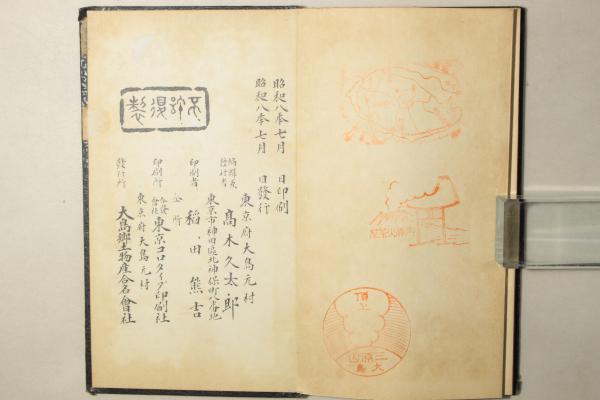 昭和八年七月 日印刷
昭和八年七月 日發行
東京府大島元村
編輯兼
發行者
髙木久太郎
東京市神田區北神保町八番地
印刷者
稲田熊吉
仝所
印刷所
合資會社
東京コロタイプ印刷社
東京府大島元村
發行所
大島鄕土物産合名會社
不許復製
頂上
三原山
大島